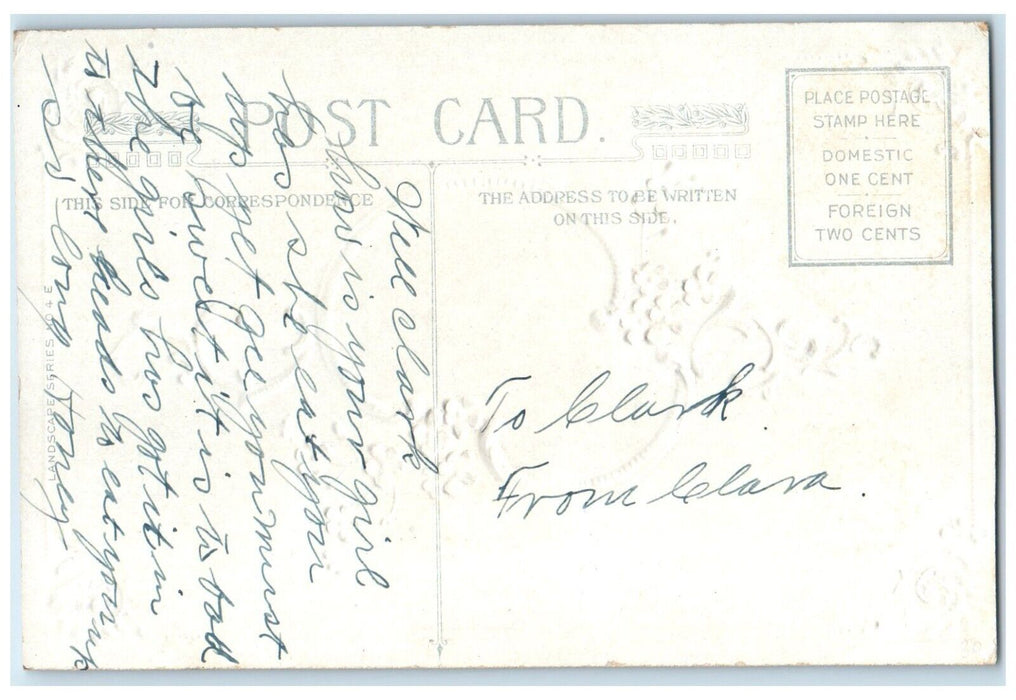 POST CARD.
THIS SIDE FOR CORRESPONDENCE
THE ADDRESS TO BE WRITTEN
ON THIS SIDE.
PLACE POSTAGE
STAMP HERE
DOMESTIC
ONE CENT
FOREIGN
TWO CENTS
LANDSCAPE SERIES NO 4 E
Well Clark
how is your girl
has she eat you
up yet gee you must
be sweet it is to bad
the girls has got it in
to there heads to eat you up
so long Toney
To Clark.
From Clara.